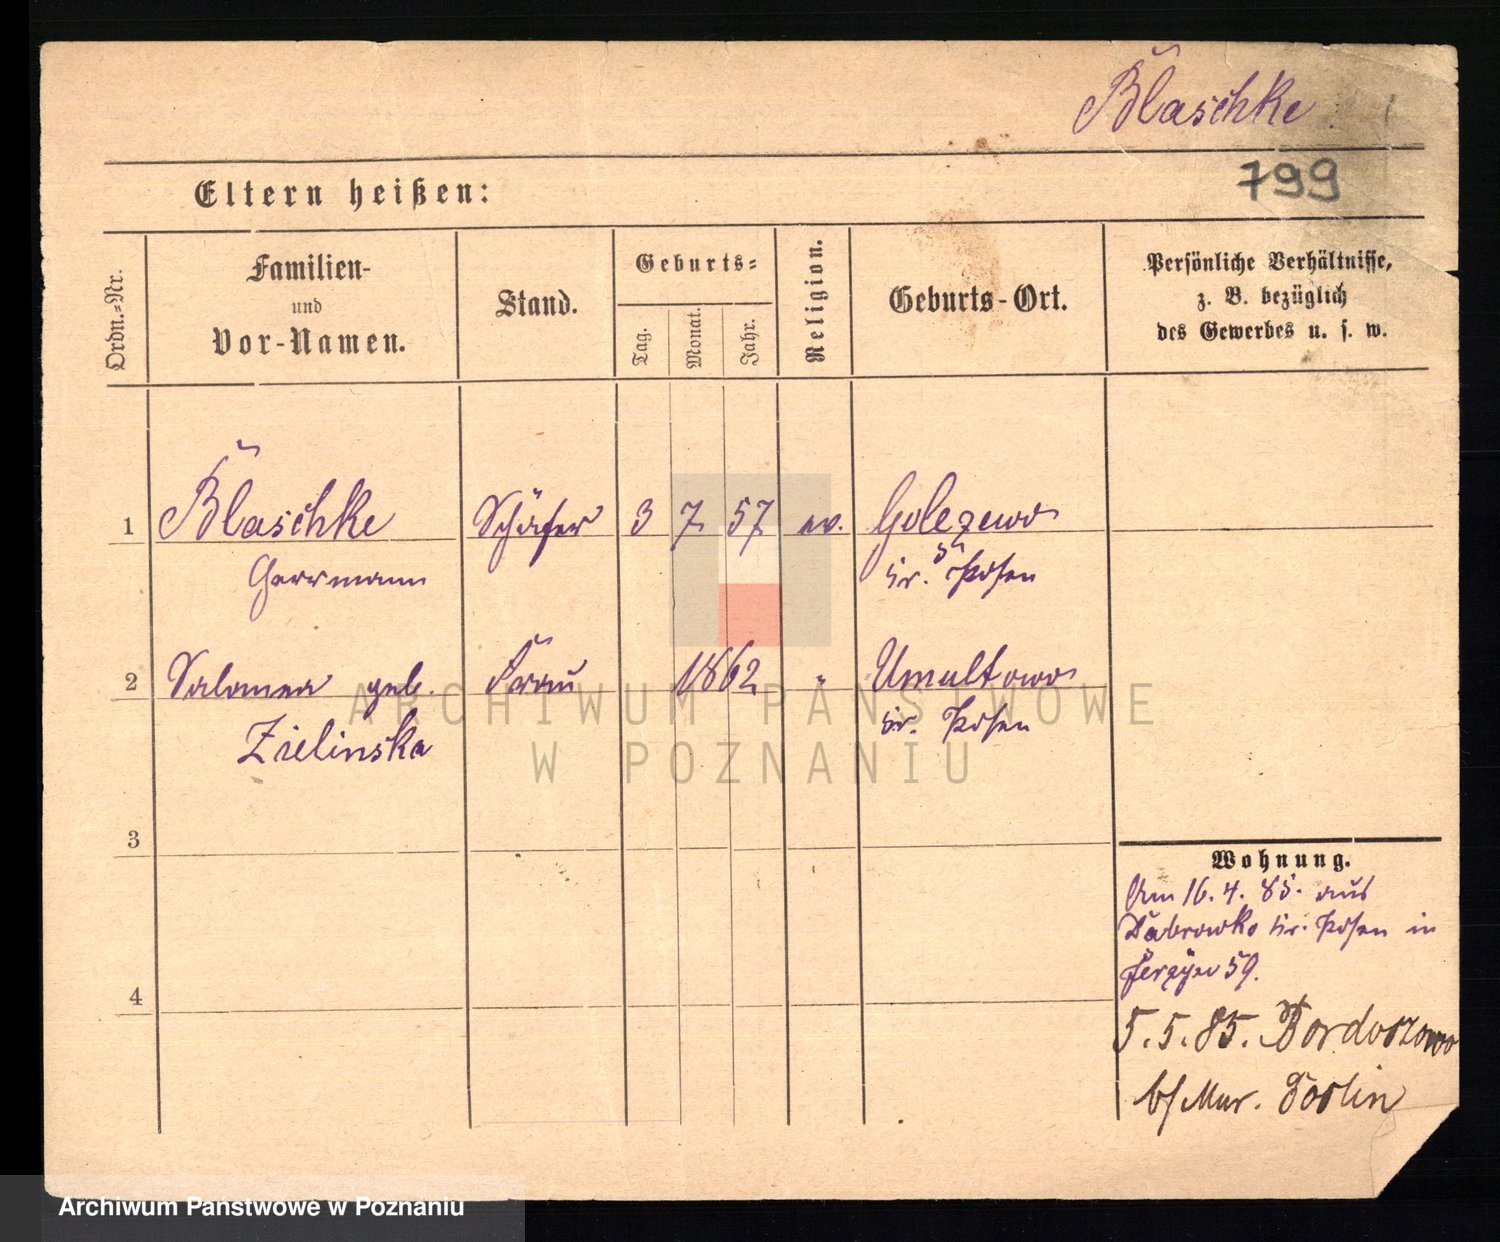 Blaschke
799
Eltern heißen:
Ordn.-Nr.
Familien-
und
Vor-Namen.
Stand.
Geburts-
Tag.
Monat.
Jahr.
Religion.
Geburts-Ort.
Persönliche Verhältnisse,
z. B. bezüglich
des Gewerbes u. s. w.
1 Blaschke Schäfer 3 7 57 ev. Golezewo
Herrmann Kr. Posen
2 Salomea geb. Frau 1862 " Umultowo
Zielinska Kr. Posen
3
4
Wohnung.
Am 16. 4. 85. aus
Dabrowko Kr. Posen in
Jerzyce 59.
5. 5. 85.
b/ Mur. Goslin
ARCHIWUM PAŃSTWOWE
W POZNANIU
Archiwum Państwowe w Poznaniu